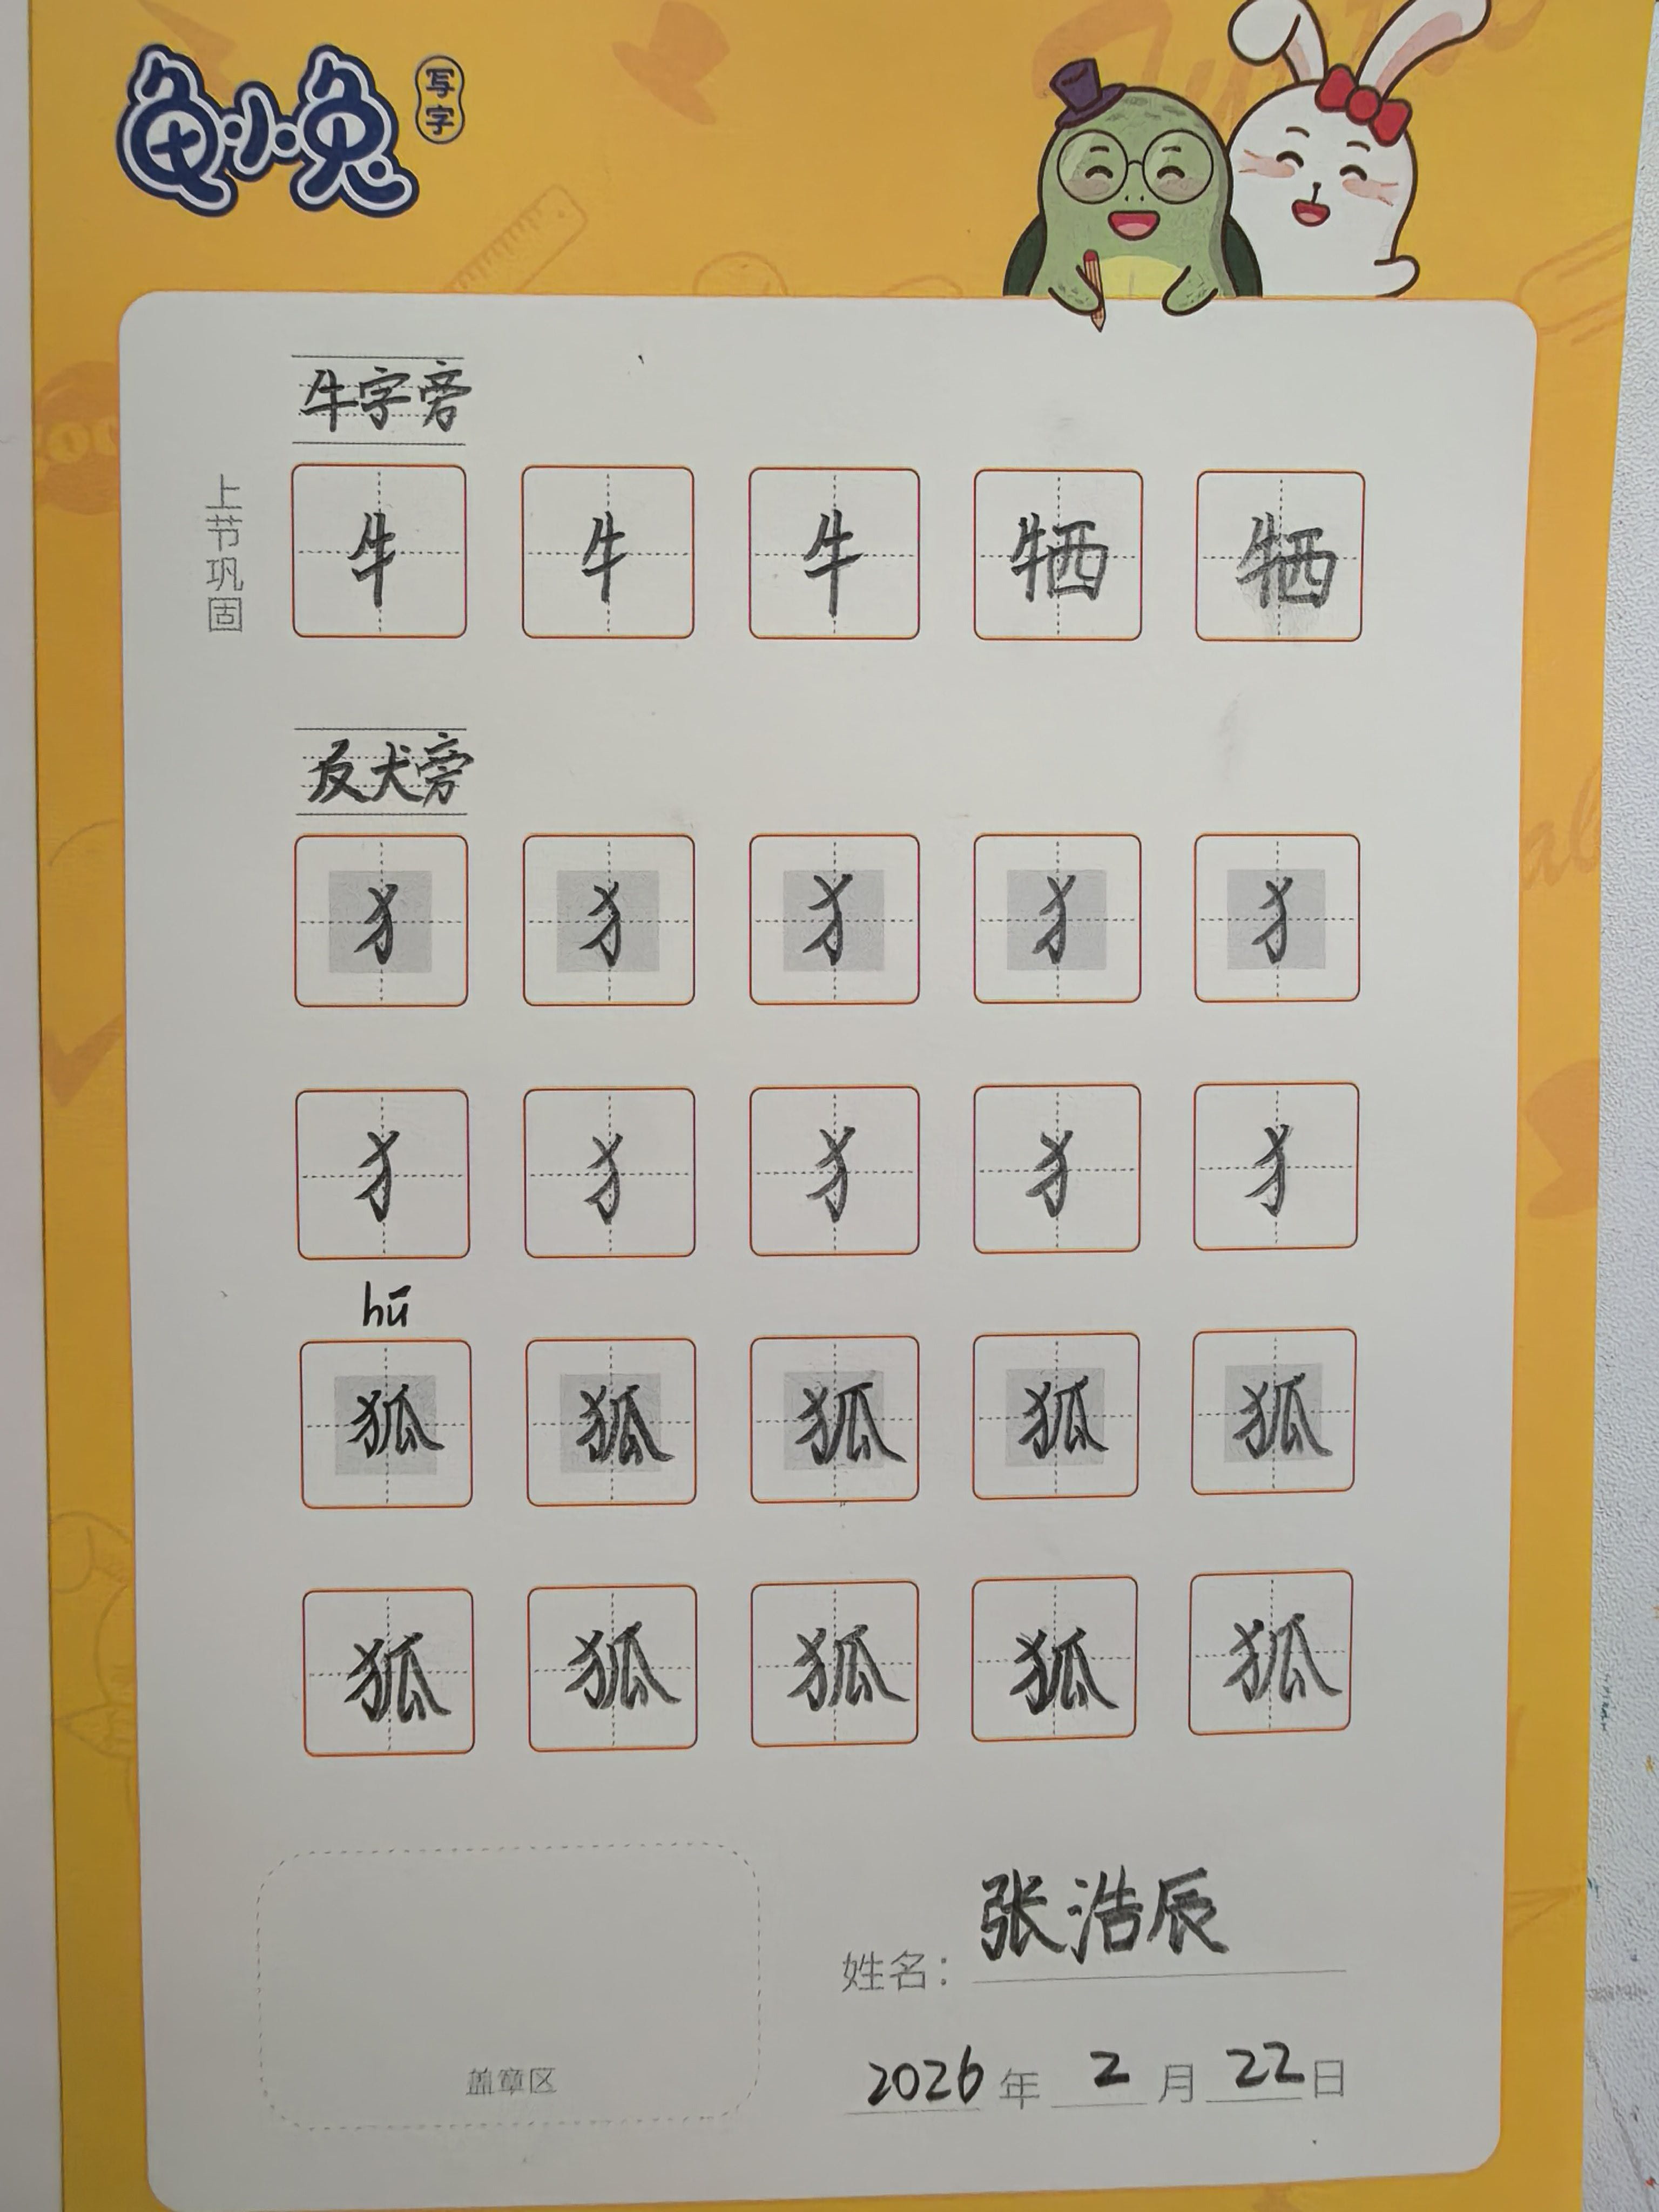 龟小兔 写字
牛字旁
上节巩固
牜 牜 牜 牺 牺
反犬旁
犭 犭 犭 犭 犭
犭 犭 犭 犭 犭
hū
狐 狐 狐 狐 狐
狐 狐 狐 狐 狐
姓名：张浩辰
盖章区
2026 年 2 月 22 日